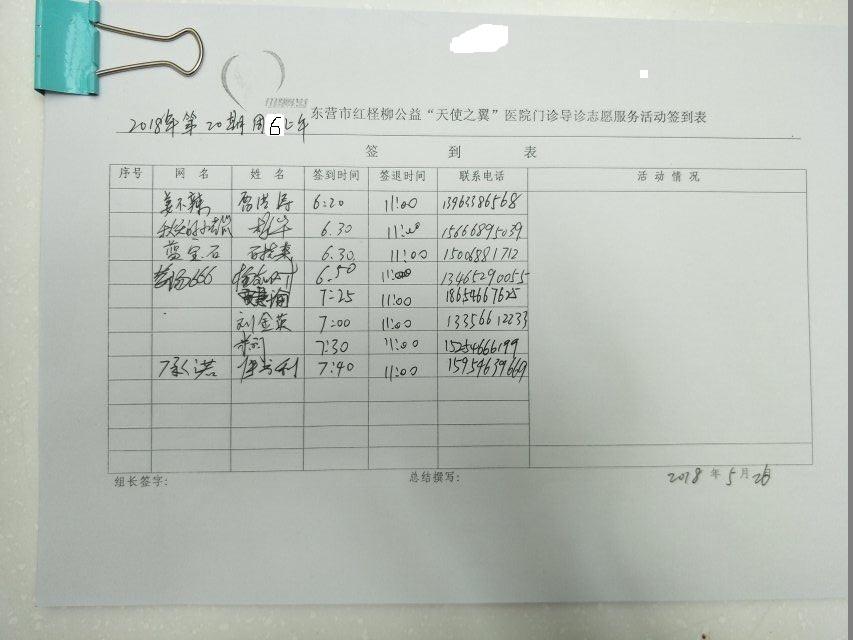 东营市红柽柳公益“天使之翼”医院门诊导诊志愿服务活动签到表
2018年第20期周6上午
签 到 表
序号 网 名 姓 名 签到时间 签退时间 联系电话 活 动 情 况
姜不辣 6:20 11:00 13963386568
6.30 11:00 15666895039
蓝宝石 6.30 11:00 15006881712
666 6.50 11:00 13465290055
7:25 11:00 18654667625
刘金英 7:00 11:00 13356612233
7:30 11:00 15254666199
承诺 7:40 11:00 15954639669
组长签字: 总结撰写: 2018 年 5 月 26 日